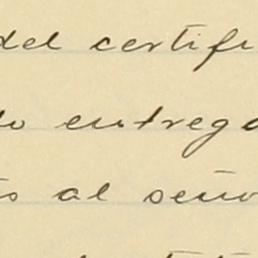 del certifi
do entrega
s al seño